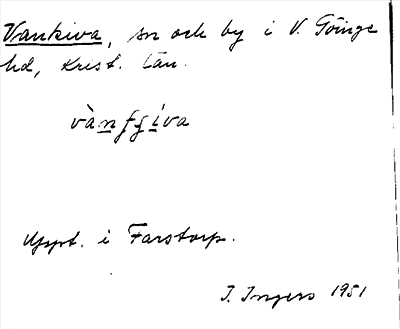 Vankiva, sn och by i V. Göinge
hd, Krist. län.
vànfgiva
Uppt. i Farstorp.
I. Ingers 1951